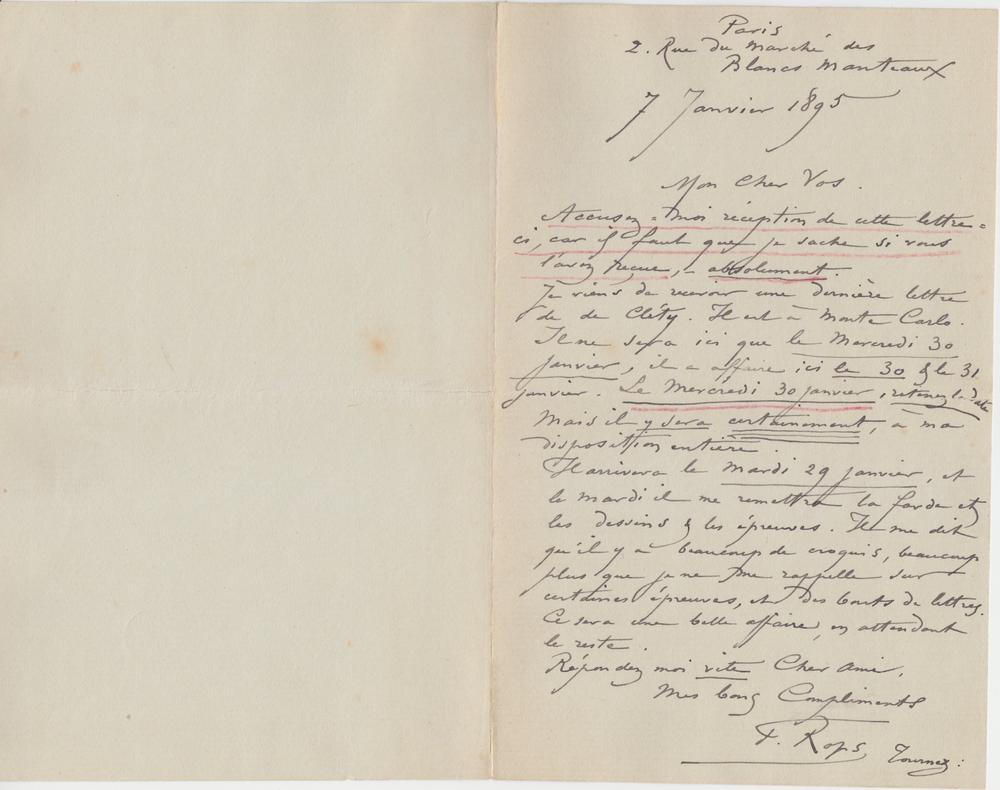 Paris
2. Rue du Marché des
Blancs Manteaux
7 Janvier 1895
Mon Cher Vos.
Accusez-moi réception de cette lettre-
ci, car il faut que je sache si vous
l'avez reçue, – absolument.
Je viens de recevoir une dernière lettre
de de Cléty. Il est à Monte Carlo.
Il ne sera ici que le Mercredi 30
janvier, il a affaire ici le 30 & le 31
janvier. Le Mercredi 30 janvier, retenez la date
Mais il y sera certainement, à ma
disposition entière.
Il arrivera le mardi 29 janvier, et
le mardi il me remettra la farde et
les dessins & les épreuves. Il me dit
qu'il y a beaucoup de croquis, beaucoup
plus que je ne me rappelle sur
certaines épreuves, et des bouts de lettres.
Ce sera une belle affaire, en attendant
le reste.
Répondez moi vite Cher Ami,
Mes bons Compliments
F. Rops
Tournez :